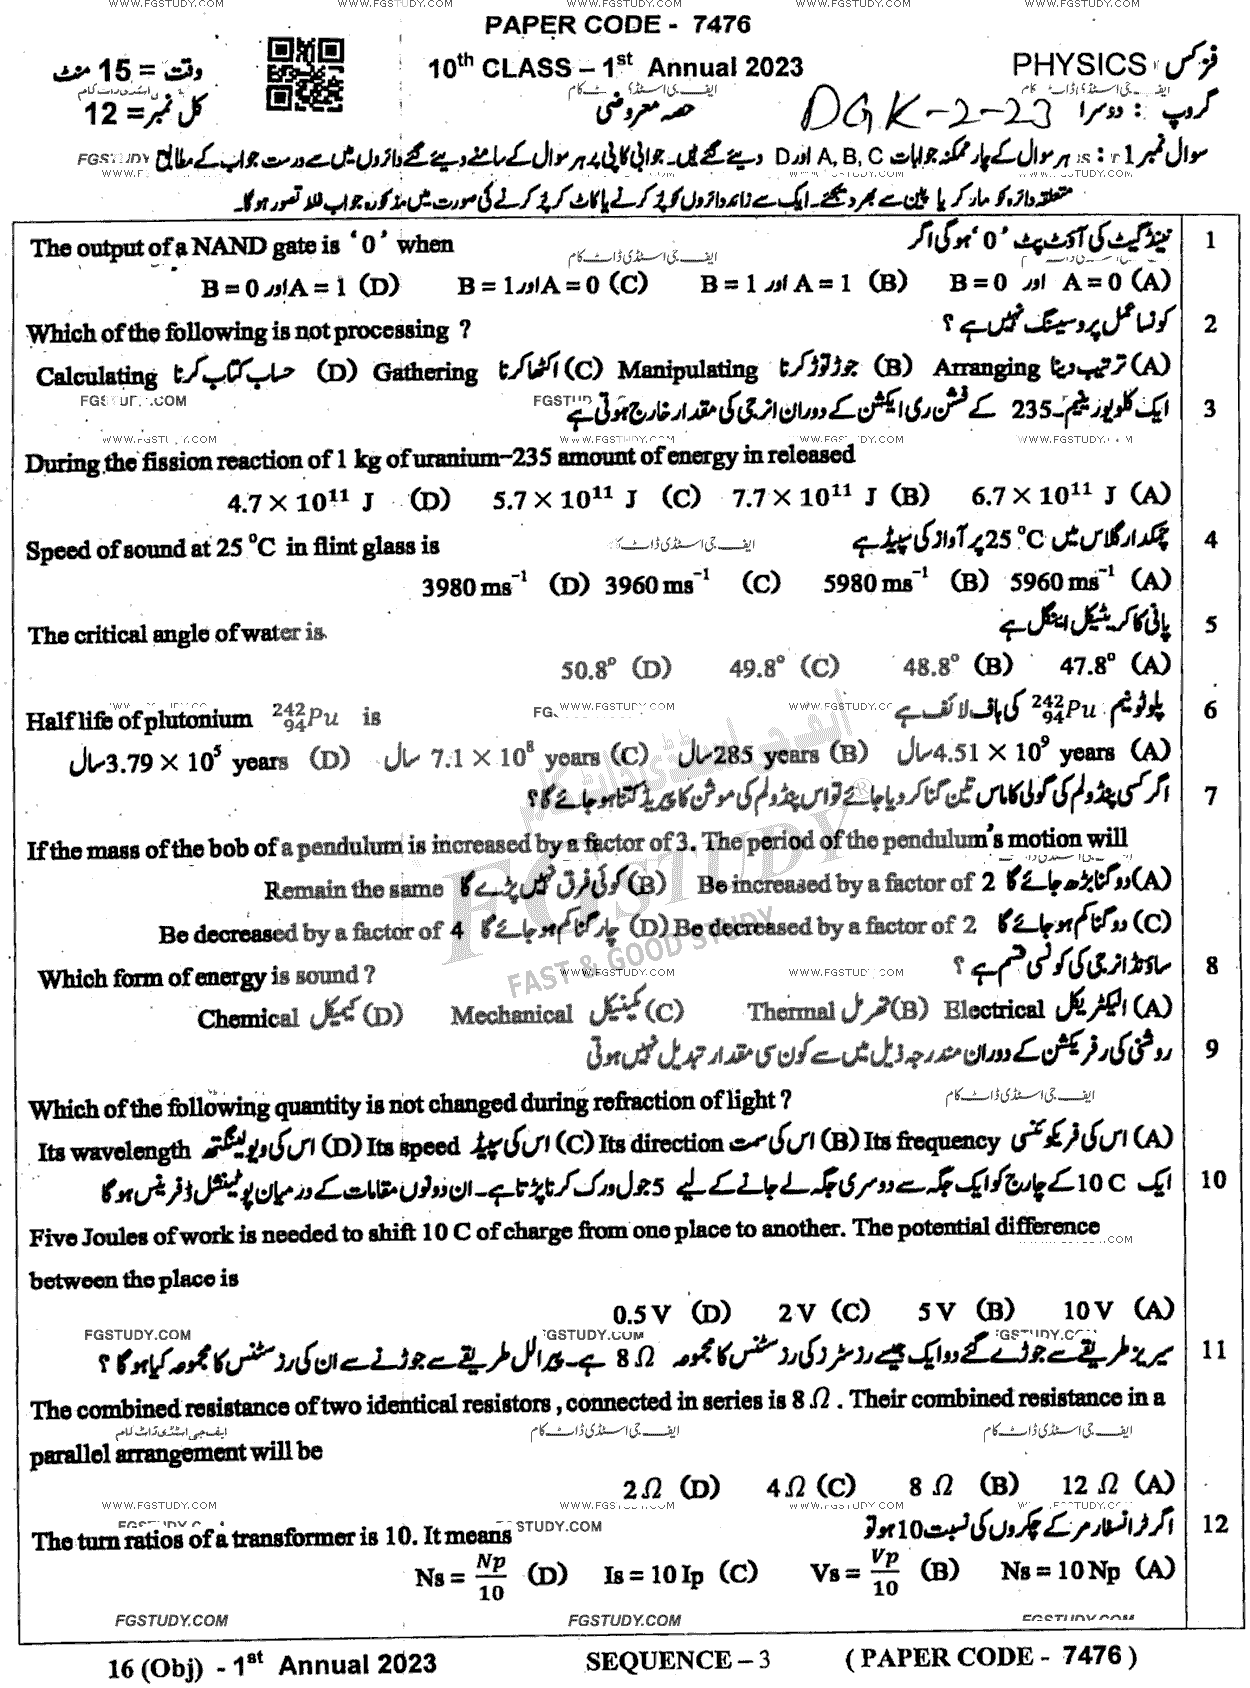 WWW.FGSTUDY.COM WWW.FGSTUDY.COM WWW.FGSTUDY.COM
PAPER CODE - 7476
10th CLASS – 1st Annual 2023
PHYSICS فزکس
وقت = 15 منٹ
حصہ معروضی
DGK-2-23
گروپ : دوسرا
کل نمبر = 12
سوال نمبر 1 : ہر سوال کے چار ممکنہ جوابات A, B, C اور D دیئے گئے ہیں۔ جوابی کاپی پر ہر سوال کے سامنے دیئے گئے دائروں میں سے درست جواب کے مطابق
متعلقہ دائرہ کو مارکر یا پین سے بھر دیجئے۔ ایک سے زائد دائروں کو پُر کرنے یا کاٹ کر پُر کرنے کی صورت میں مذکورہ جواب غلط تصور ہوگا۔
1 نینڈ گیٹ کی آؤٹ پٹ '0' ہوگی اگر
The output of a NAND gate is '0' when
(A) A = 0 اور B = 0 (B) A = 1 اور B = 1 (C) A = 0 اور B = 1 (D) A = 1 اور B = 0
2 کونسا عمل پروسیسنگ نہیں ہے ؟
Which of the following is not processing ?
(A) ترتیب دینا Arranging (B) جوڑ توڑ کرنا Manipulating (C) اکٹھا کرنا Gathering (D) حساب کتاب کرنا Calculating
FGSTUDY.COM
3 ایک کلو یورینیم۔235 کے فشن ری ایکشن کے دوران انرجی کی مقدار خارج ہوتی ہے
WWW.FGSTUDY.COM
During the fission reaction of 1 kg of uranium–235 amount of energy in released
(A) 6.7 × 10¹¹ J (B) 7.7 × 10¹¹ J (C) 5.7 × 10¹¹ J (D) 4.7 × 10¹¹ J
4 چمکدار گلاس میں 25 °C پر آواز کی سپیڈ ہے
Speed of sound at 25 °C in flint glass is
ایف جی اسٹڈی ڈاٹ کام
(A) 5960 ms⁻¹ (B) 5980 ms⁻¹ (C) 3960 ms⁻¹ (D) 3980 ms⁻¹
5 پانی کا کریٹیکل اینگل ہے
The critical angle of water is
(A) 47.8° (B) 48.8° (C) 49.8° (D) 50.8°
6 پلوٹونیم ²⁴²₉₄Pu کی ہاف لائف ہے
Half life of plutonium ²⁴²₉₄Pu is
(A) 4.51 × 10⁹ years سال (B) 285 years سال (C) 7.1 × 10⁸ years سال (D) 3.79 × 10⁵ years سال
7 اگر کسی پنڈولم کی گولی کا ماس تین گنا کر دیا جائے تو اس پنڈولم کی موشن کا پیریڈ کتنا ہو جائے گا؟
If the mass of the bob of a pendulum is increased by a factor of 3. The period of the pendulum's motion will
(A) دو گنا بڑھ جائے گا Be increased by a factor of 2 (B) کوئی فرق نہیں پڑے گا Remain the same
(C) دو گنا کم ہو جائے گا Be decreased by a factor of 2 (D) چار گنا کم ہو جائے گا Be decreased by a factor of 4
FGSTUDY
FAST & GOOD STUDY
8 ساؤنڈ انرجی کی کونسی قسم ہے ؟
Which form of energy is sound ?
(A) الیکٹریکل Electrical (B) تھرمل Thermal (C) مکینیکل Mechanical (D) کیمیکل Chemical
9 روشنی کی رفریکشن کے دوران مندرجہ ذیل میں سے کون سی مقدار تبدیل نہیں ہوتی
Which of the following quantity is not changed during refraction of light ?
ایف جی اسٹڈی ڈاٹ کام
(A) اس کی فریکوئنسی Its frequency (B) اس کی سمت Its direction (C) اس کی سپیڈ Its speed (D) اس کی ویولینگتھ Its wavelength
10 ایک 10 C کے چارج کو ایک جگہ سے دوسری جگہ لے جانے کے لیے 5 جول ورک کرنا پڑتا ہے۔ ان دونوں مقامات کے درمیان پوٹینشل ڈفرینس ہوگا
Five Joules of work is needed to shift 10 C of charge from one place to another. The potential difference
between the place is
(A) 10 V (B) 5 V (C) 2 V (D) 0.5 V
FGSTUDY.COM
11 سیریز طریقے سے جوڑے گئے دو ایک جیسے رزسٹرز کی رزسٹنس کا مجموعہ 8 Ω ہے۔ پیرالل طریقے سے جوڑنے سے ان کی رزسٹنس کا مجموعہ کیا ہوگا ؟
The combined resistance of two identical resistors , connected in series is 8 Ω . Their combined resistance in a
parallel arrangement will be
ایف جی اسٹڈی ڈاٹ کام
(A) 12 Ω (B) 8 Ω (C) 4 Ω (D) 2 Ω
WWW.FGSTUDY.COM
12 اگر ٹرانسفارمر کے چکروں کی نسبت 10 ہو تو
The turn ratios of a transformer is 10. It means
(A) Ns = 10 Np (B) Vs = Vp/10 (C) Is = 10 Ip (D) Ns = Np/10
FGSTUDY.COM FGSTUDY.COM
16 (Obj) - 1st Annual 2023 SEQUENCE – 3 ( PAPER CODE - 7476 )